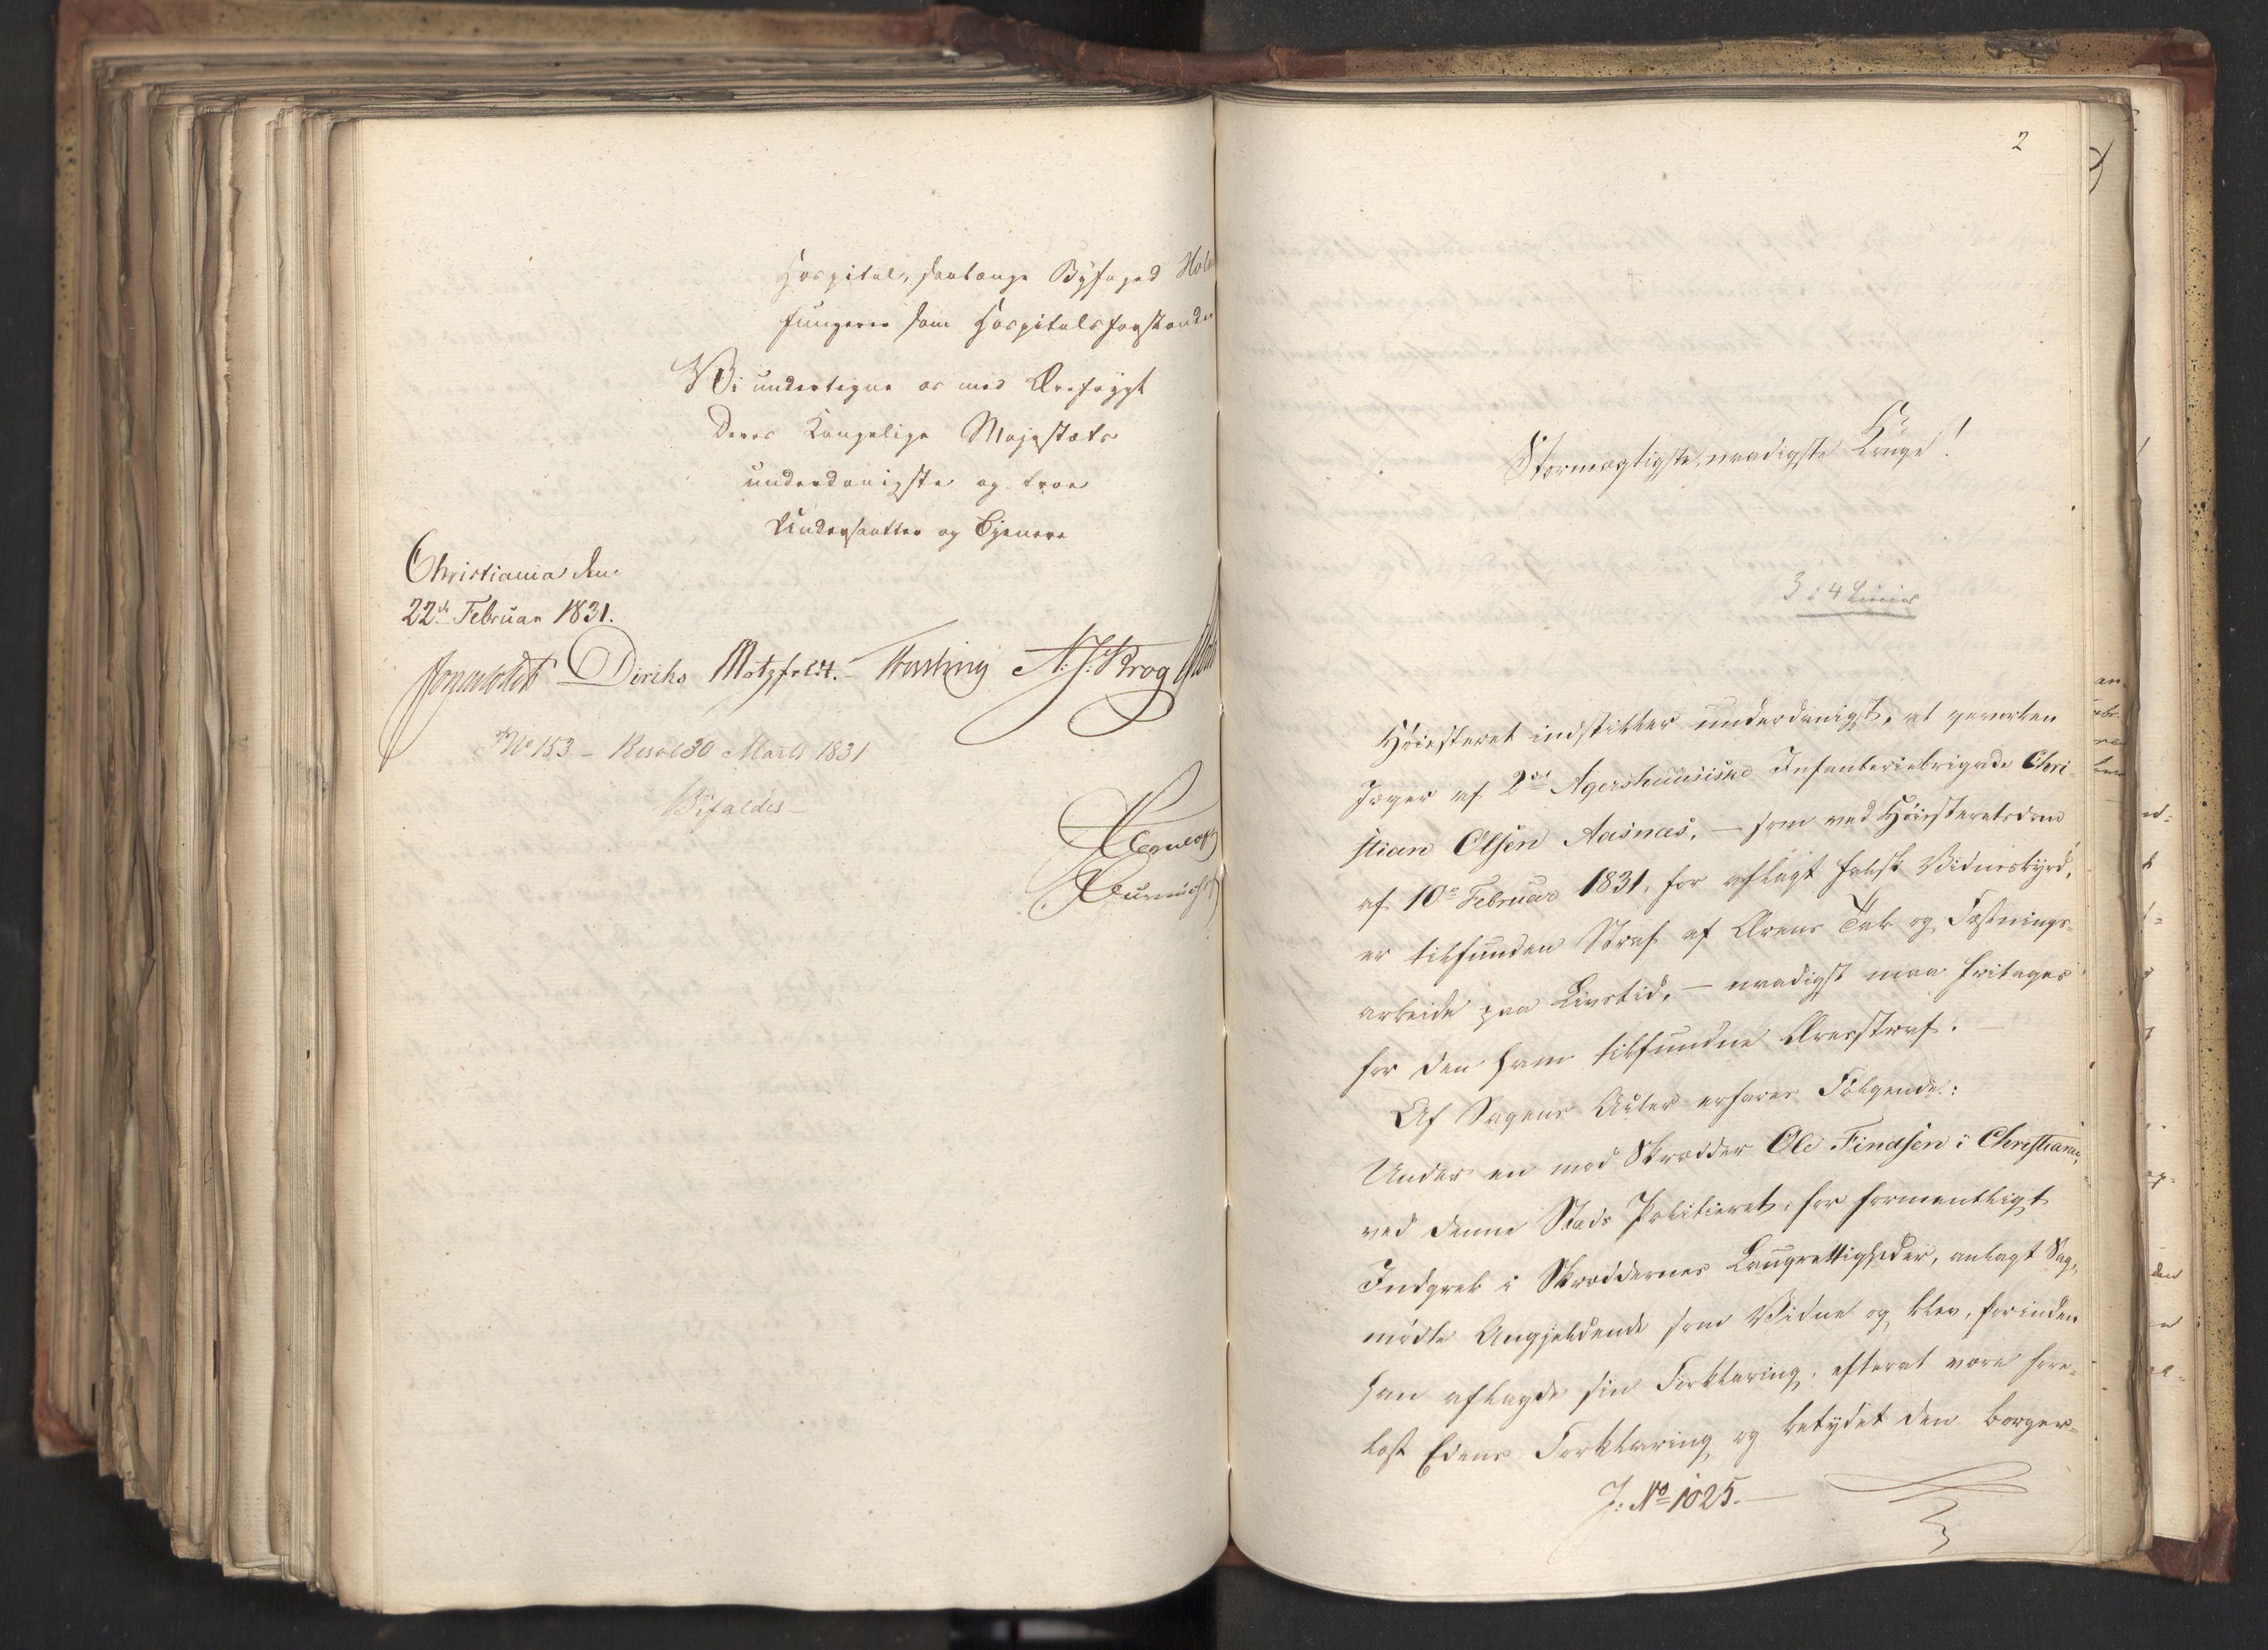 Hospital, saalænge Byfoged Hol
fungerer som Hospitalsforstander
Vi undertegne os med Ærefrygt
Deres Kongelige Majestæts
underdanigste og troe
Undersaatter og Tjenere
Christiania den
22de Februar 1831.
Diriks Motzfeldt. Fasting N. J. Krog
No 153 - Resol 30 Marts 1831
Bifaldes -
2
Stormægtigste, naadigste Konge!
3 a 4 Linier
Høiesteret indstiller underdanigst, at gevorben
Jæger af 2den Agershuusiske Infanteriebrigade Chri-
stian Olsen Aasnæs, - som ved Høiesteretsdom
af 10de Februar 1831, for aflagt falsk Vidnesbyrd,
er tilfunden Straf af Ærens Tab og Fæstnings-
arbeide paa Livstid, - naadigst maa fritages
for den ham tilfundne Æresstraf. -
Af Sagens Acter erfares Følgende:
Under en mod Skrædder Ole Findsen i Christiania,
ved denne Stads Politieret, for formentligt
Indgreb i Skræddernes Laugrettigheder, anlagt Sag,
mødte Angjeldende som Vidne og blev, forinden
han aflagde sin Forklaring, efterat være fore-
læst Edens Forklaring og betydet den borger-
J: No 1025. -